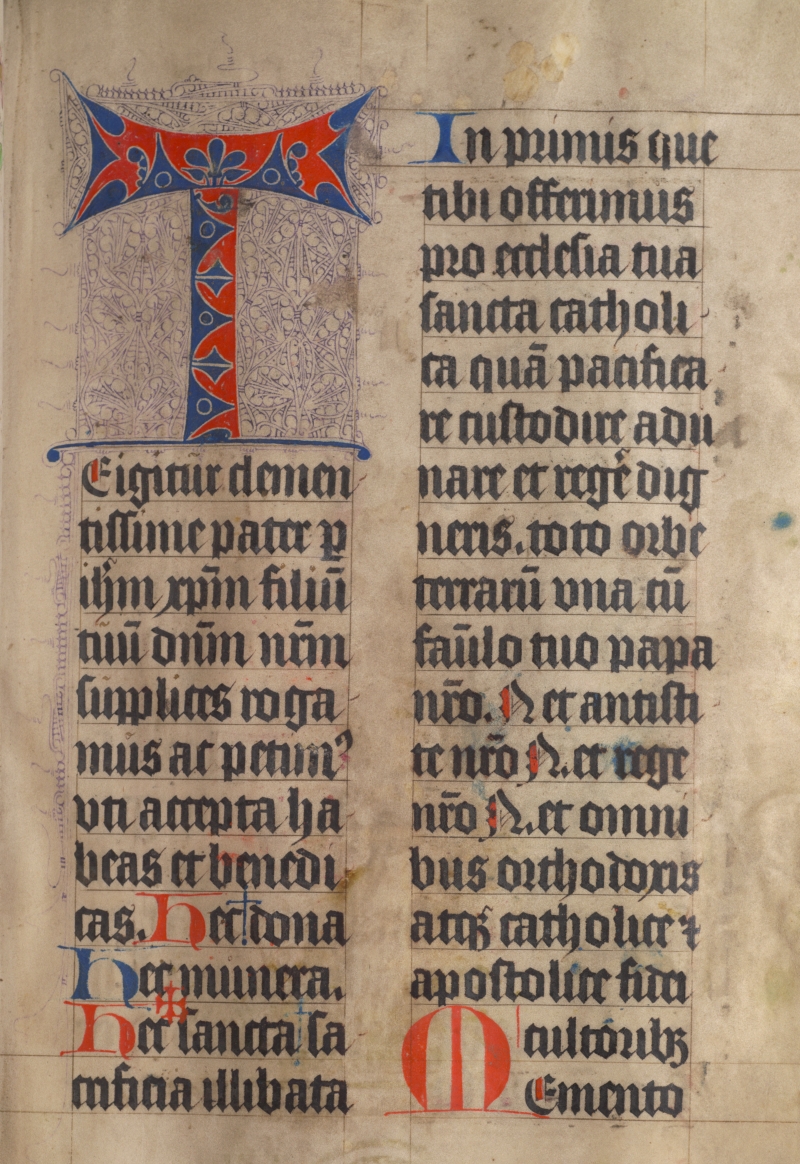 T
Eigitur clemen
tissime pater p̲
ih̄m xp̄m filiū
tuū dn̄m nr̄m
supplices roga
mus ac petimꝰ
vti accepta ha
beas et benedi
cas. Hec ✝ dona
Hec munera.
Hec ✠ sancta sa
crificia illibata
In primis que
tibi offerimus
pro ecclesia tua
sancta catholi
ca quā pacifica
re custodire adu
nare et rege᷑ dig
neris. toto orbe
terrarū vna cū
fam̄lo tuo papa
nr̄o. N et antisti
te nr̄o N. et rege
nr̄o N. et omni
bus orthodoxis
atqꝫ catholice ⁊
apostolice fidei
cultoribꝫ
Memento